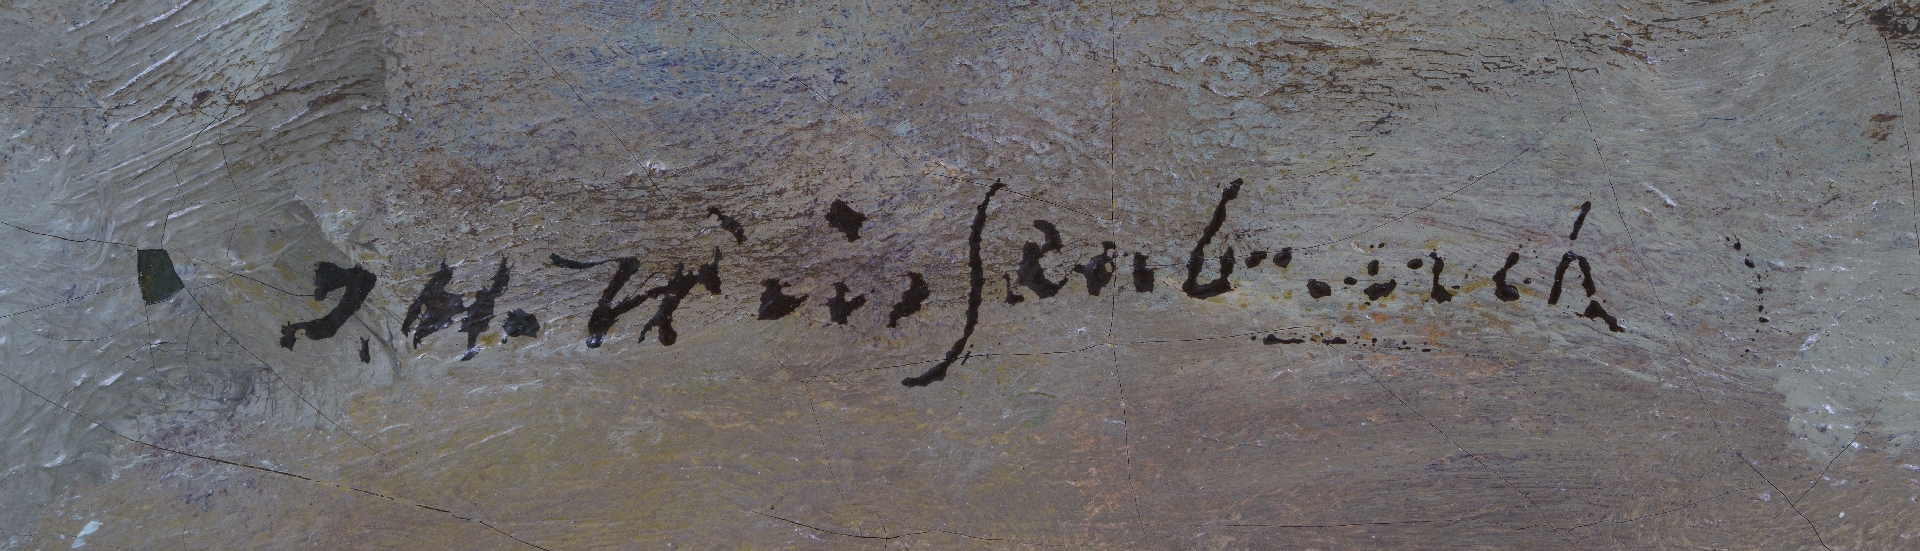 J. H. Weissenbruch